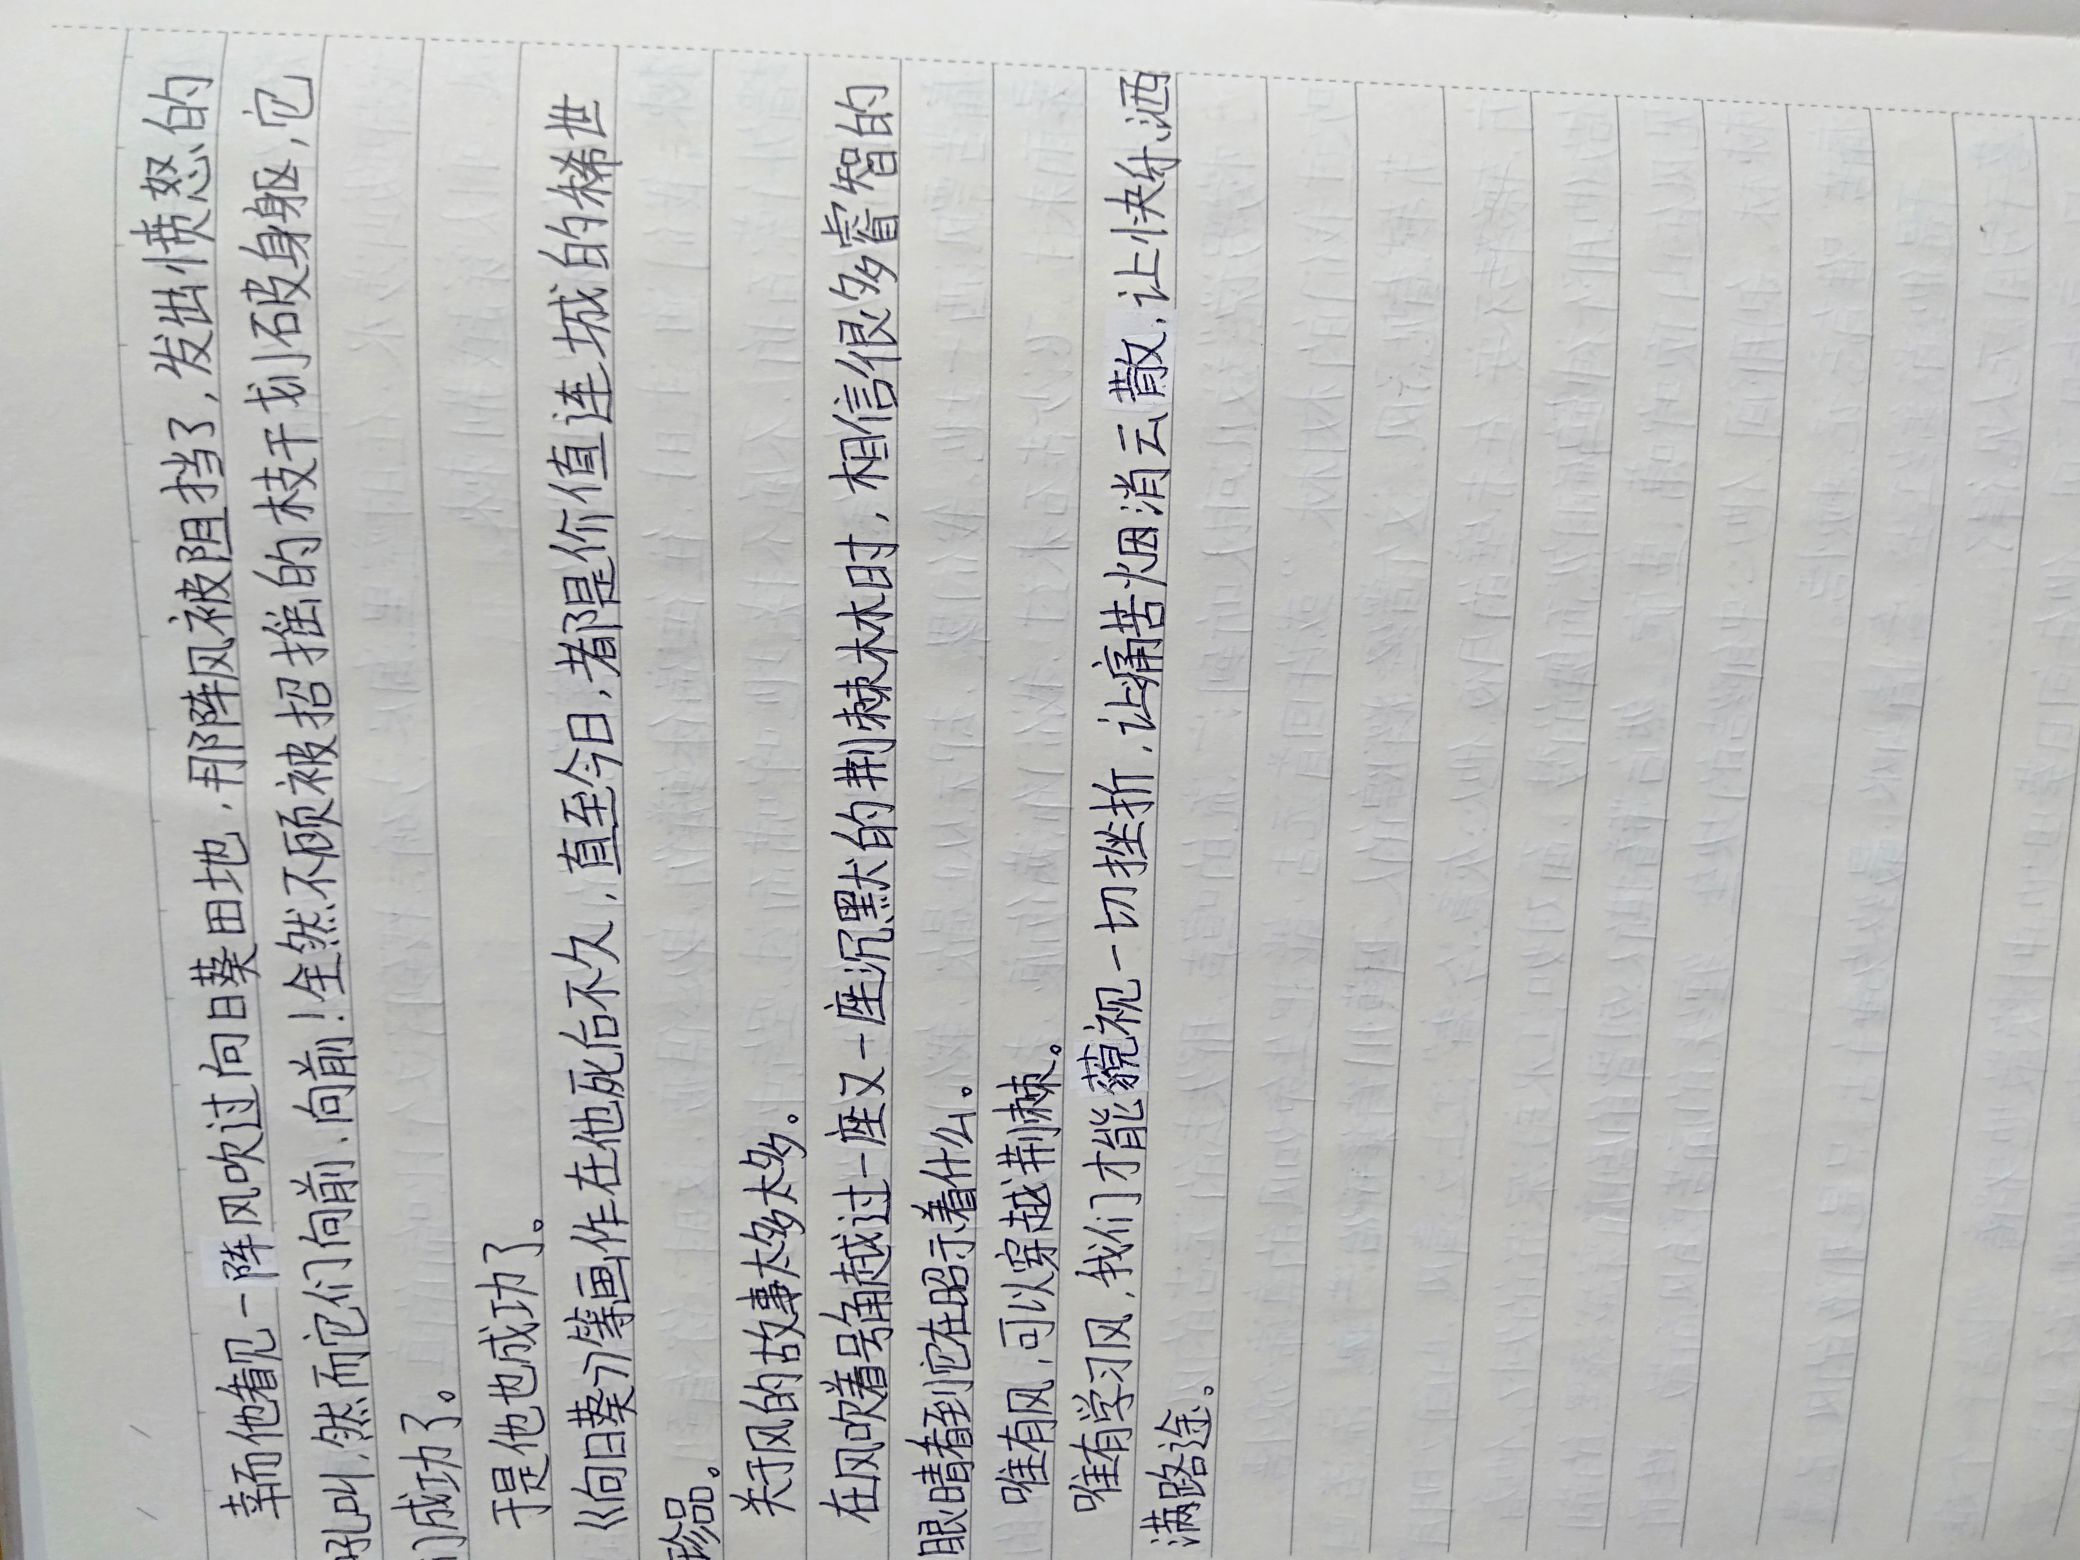 幸而他看见一阵风吹过向日葵田地，那阵风被阻挡了，发出愤怒的
吼叫，然而它们向前、向前、向前！全然不顾被招摇的枝干划破身躯，它
们成功了。
于是他也成功了。
《向日葵》等画作在他死后不久，直至今日，都是价值连城的稀世
珍品。
关于风的故事太多太多。
在风吹着号角越过一座又一座沉默的荆棘林时，相信很多睿智的
眼睛看到它在昭示着什么。
唯有风，可以穿越荆棘。
唯有学习风，我们才能藐视一切挫折，让痛苦烟消云散，让快乐洒
满路途。